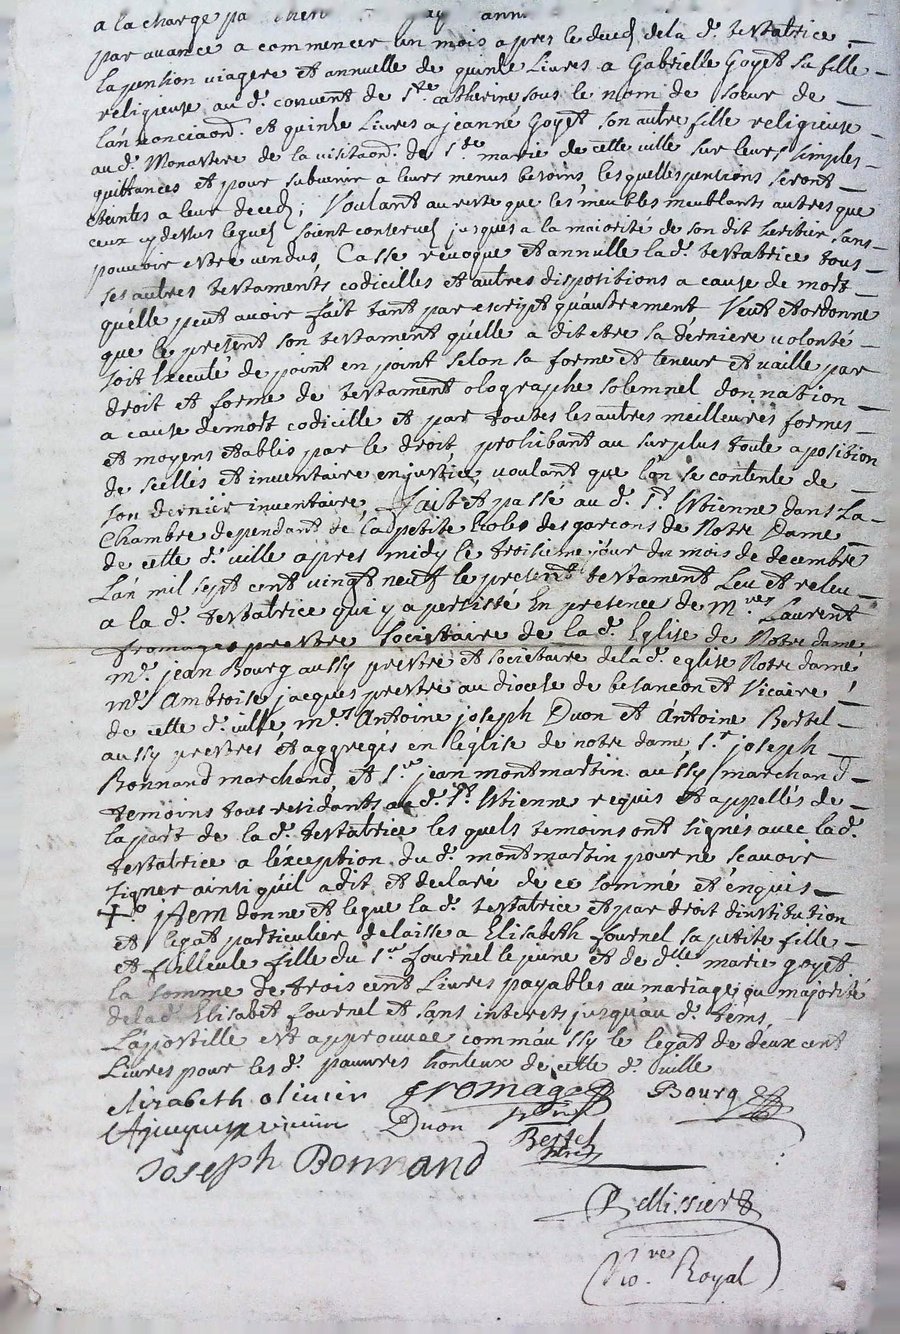 a la charge pa
par avance a commencer un mois apres le deced de la d. testatrice
la pension viagere et annuelle de quinze Livres a Gabrielle Goyet sa fille
religieuse au d. convent de Ste catherine sous le nom de soeur de
L'annonciaon. et quinze Livres a jeanne Goyet son autre fille religieuse
au d. Monastere de la visitaon. de Ste marie de cette ville sur leurs simples
quittances et pour subvenir a leurs menus besoins, lesquelles pensions seront
eteintes a leur deced; Voulant au reste que les meubles meublants autres que
ceux cy dessus legued soient conserved jusques a la maiorité de son dit heritier sans
pouvoir estre vendus, Casse revoque et annulle la d. testatrice tous
ses autres testaments codicilles et autres dispositions a cause de mort
qu'elle peut avoir fait tant par escript qu'autrement Veut et ordonne
que le present son testament qu'elle a dit etre sa derniere volonté
soit Executé de point en point selon sa forme et teneur et vaille par
droit et forme de testament olographe solemnel donnation
a cause demort codicille et par toutes les autres meilleures formes
et moyens etablis par le droit, prohibant au surplus toute aposition
de scellés et inventaire en justice, voulant que l'on se contente de
son dernier inventaire, Fait et passé au d. St. Etienne dans La
Chambre dependant de la petite Ecole des garcons de Notre Dame
de cette d. ville apres midy le troisieme jour du mois de decembre
L'an mil sept cent vingt neuf le present testament Leu et releu
a la d. testatrice qui y a persisté En presence de mres Laurent
fromages prestre societaire de la d. Eglise de Notre dame,
mre. jean Bourg aussy prestre et societaire de la d. eglise Notre dame,
mre Ambroise jacques prestre au diocese de besancon et Vicaire
de cette d. ville, mrs Antoine joseph Duon et Antoine Bertel
aussy prestres et aggregés en l'église de notre dame, sr. joseph
Bonnand marchand, et sr jean montmartin aussy marchand
temoins tous residants au d. St. Etienne requis et appellés de
la part de la d. testatrice les quels temoins ont signés avec la d.
testatrice a l'exception du d. montmartin pour ne scavoir
signer ainsi qu'il a dit et declaré de ce sommé et enquis
+ jtem donne et legue la d. testatrice et par droit d'institution
et legat particulier delaisse a Elisabeth fournel sa petite fille
et filleule fille du sr fournel le jeune et de dlle marie goyet
la somme de trois cent Livres payables au mariage ou majorité
de la d. Elisabet fournel et sans interets jusqu'au d. tems
L'apostille est approuvée comm'aussy le legat de deux cent
Livres pour les d. pauvres honteux de cette d. ville
elizabeth olivier fromages Bourg
Duon Bertel
Joseph Bonnand
Pellissier
No.re Royal